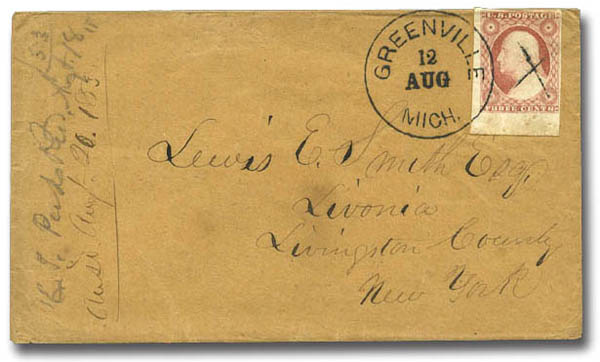 GREENVILLE
12
AUG
MICH.
U.S. POSTAGE
THREE CENTS
Lewis E. Smith Esq.
Livonia
Livingston County
New York
Aug. 18
Aug. 20. 1853